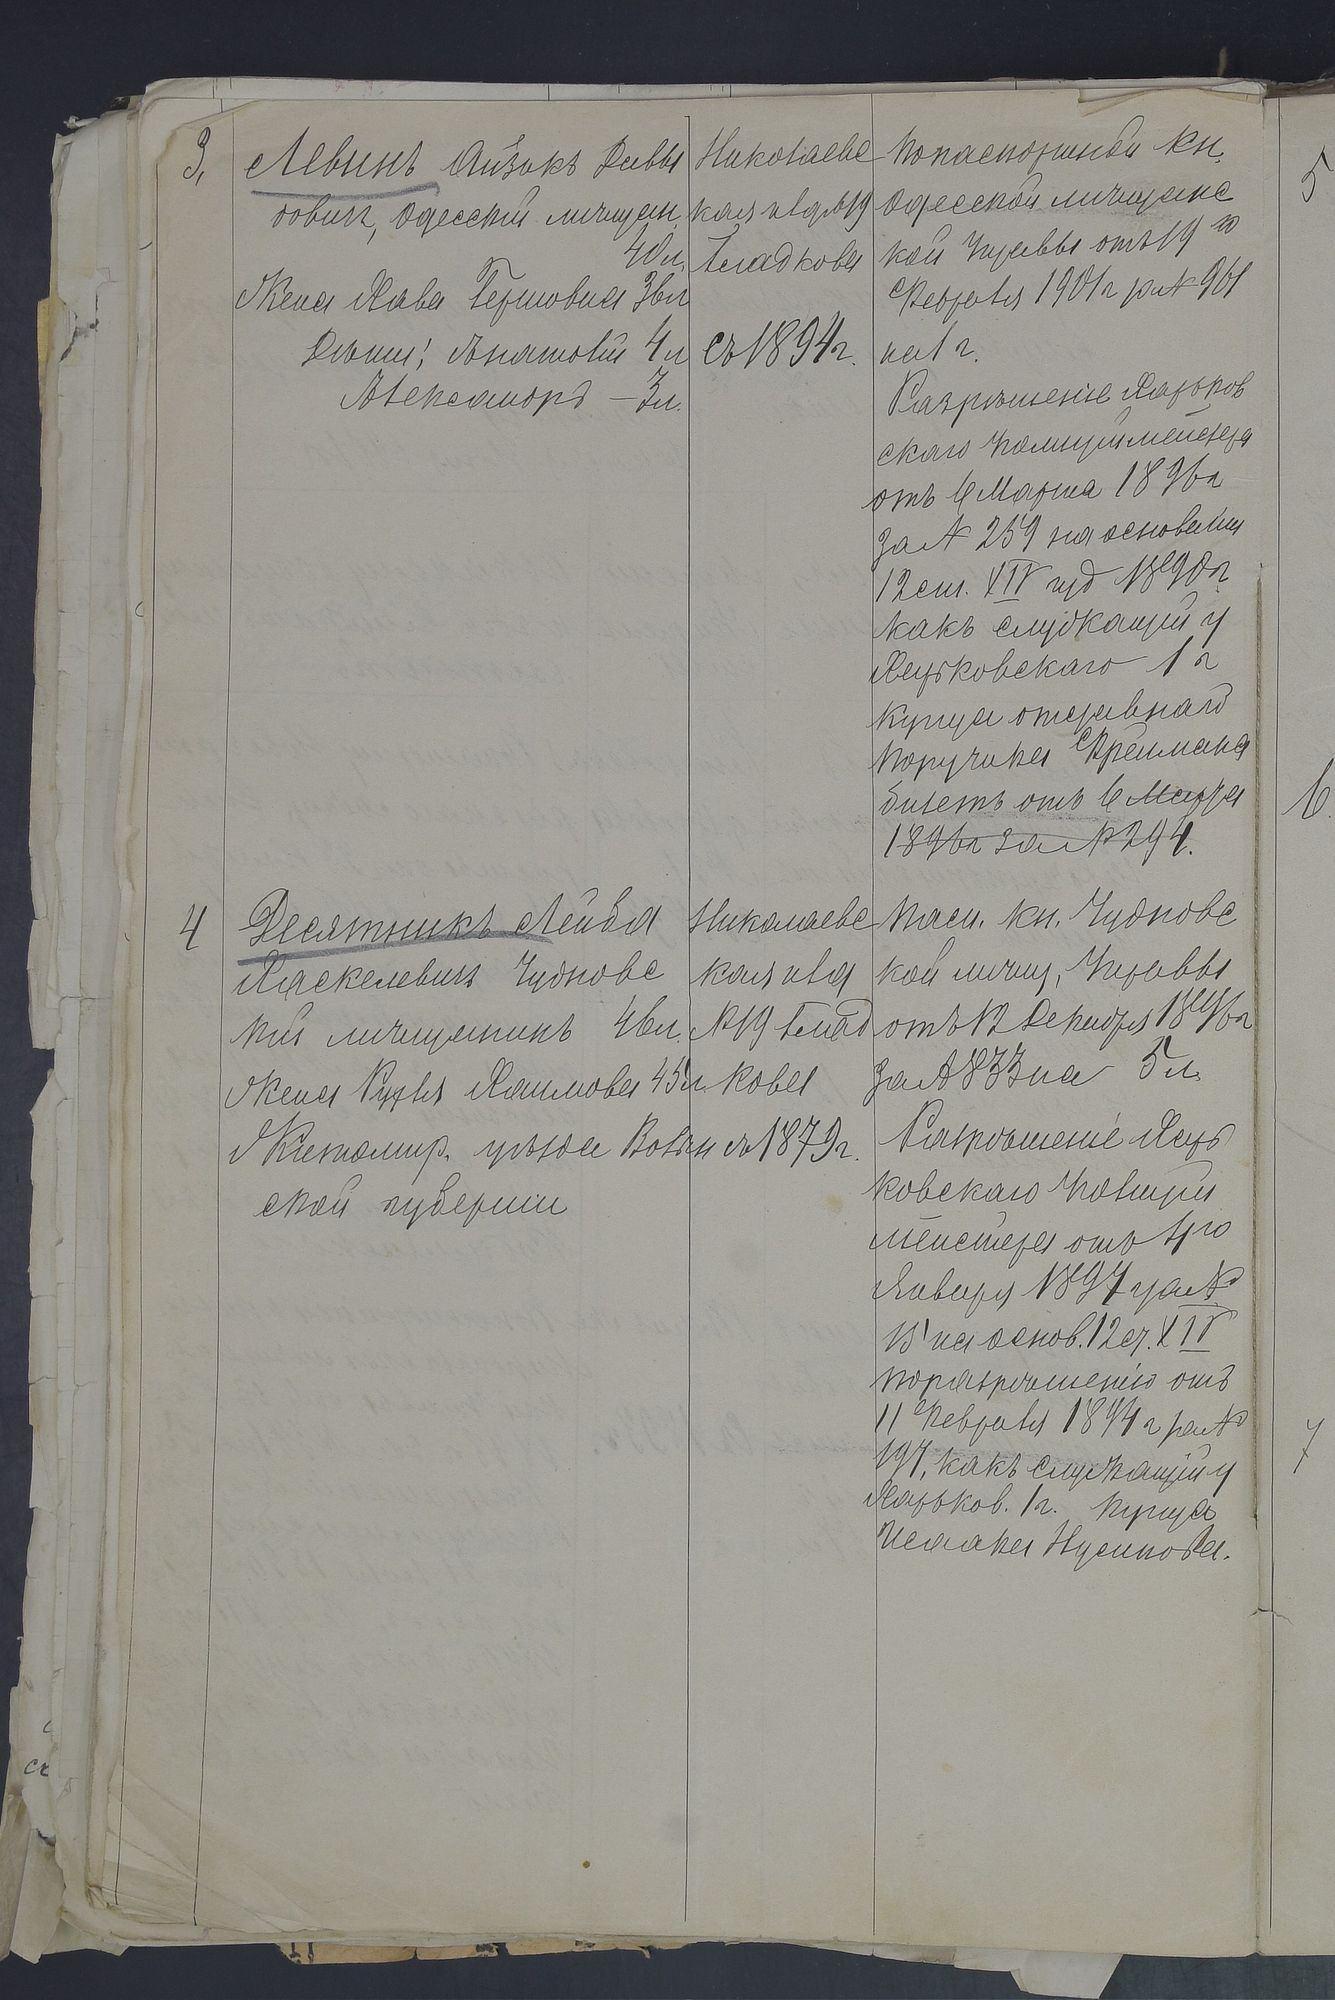 3,
Левинъ Айзикъ Давы
довичъ, Одесскій мѣщан.
40 л.
Жена Хава Гершовна 36 л
Дѣти: Анатолій 4 л
Александръ – 3 л.
Николаевс
кая пл д № 19
Гладкова
съ 1894 г.
По паспортной кн.
Одесской мѣщанс
кой Управы отъ 19 го
Февраля 1901 г за № 961
на 1 г.
Разрѣшеніе Харьков
скаго Полицiймейстера
отъ 6 Марта 1896 г
за № 259 на основаніи
12 ст. XIV изд 1890 г.
какъ служащій у
Харьковскаго 1 г
купца отставнаго
поручика Фреймана
билетъ отъ 6 Марта
1896 г за № 294.
4
Десятникъ Лейба
Хаскелевичъ Чудновс
кій мѣщанинъ 46 л.
Жена Рухля Хаимова 45 л.
Житомир. уѣзда Волын
ской губерніи
Николаевс
кая пл д
№ 19 Глад
кова
съ 1879 г.
Пасп. кн. Чудновс
кой мѣщ, Управы
отъ 12 Декабря 1896 г
за № 833 на 5 л.
Разрѣшеніе Харь
ковскаго Полиціи
мейстера отъ 4го
Января 1897 г за №
15 на основ. 12 ст. XIV
по разрѣшенію отъ
11 Февраля 1894 г за №
197, какъ служащій у
Харьков. 1 г. купца
Исаака Нусинова.
5
6.
7